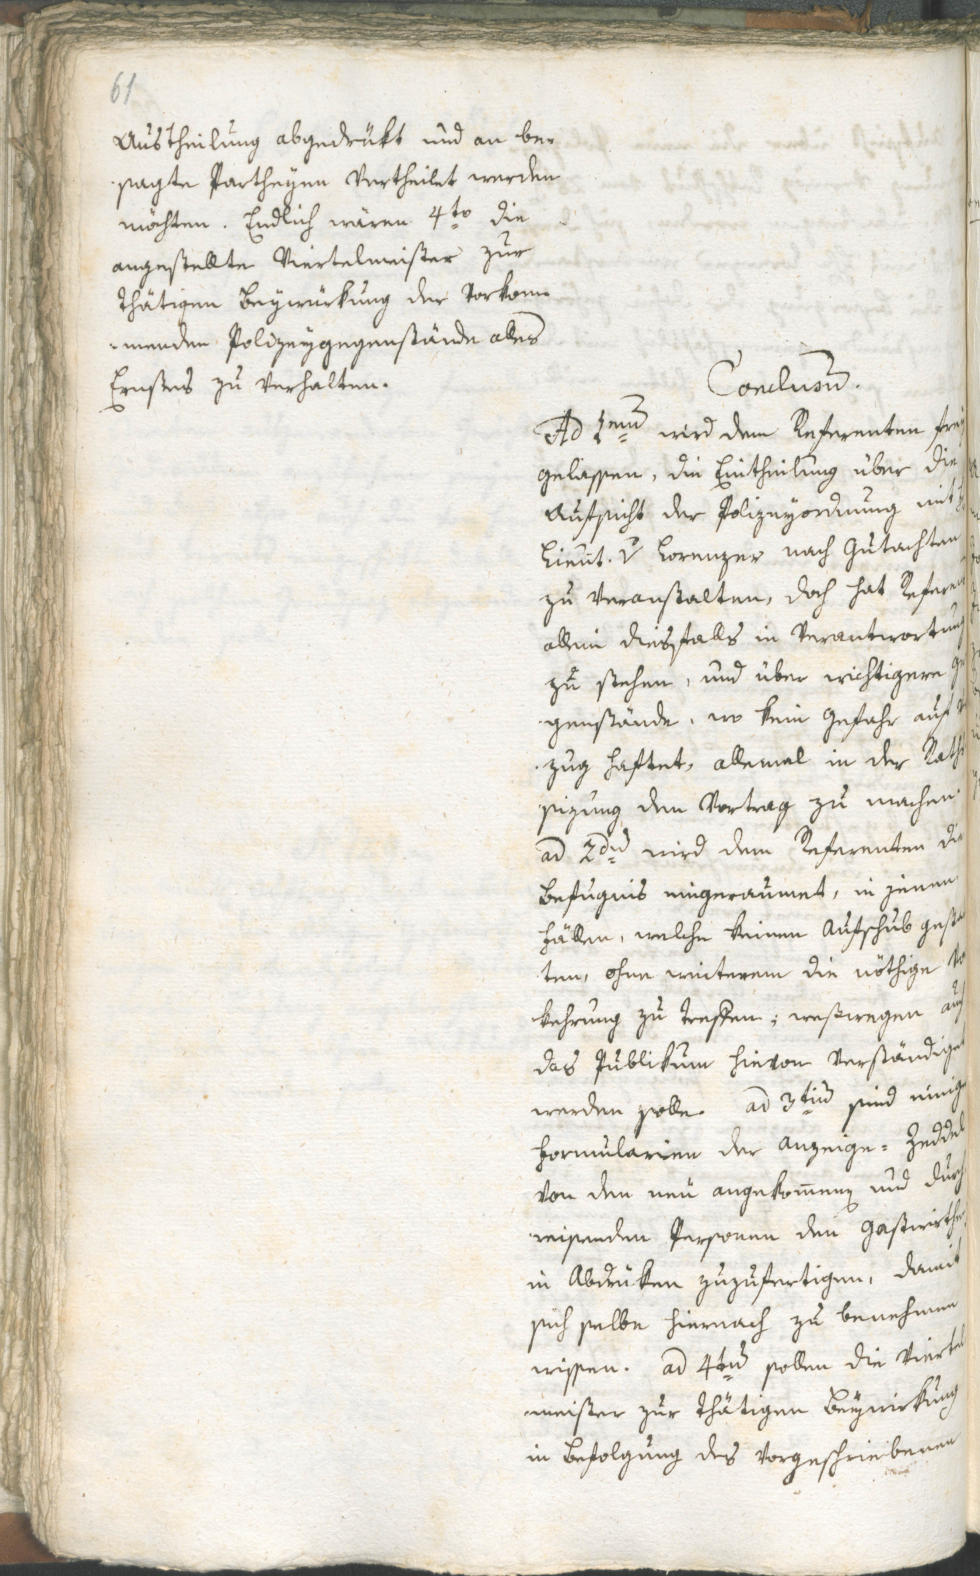 61
Austheilung abgedrükt und an be-
sagte Partheyen vertheilet werden
möchten. Endlich wären 4to die
angestellte Viertelmeister zur
thätigen Beywürkung der vorkom-
menden Polizeygegenstände alles
Ernstes zu verhalten.
Conclusum.
Ad 1mum wird dem Referenten frey
gelassen, die Eintheilung über die
Aufsicht der Polizeyordnung mit
Lieut. Lorenzer nach Gutachten
zu veranstalten, doch hat Referent
allein diesfalls in Verantwortung
zu stehen, und über wichtigere Ge
genstände, wo kein Gefahr auf
zug haftet, allemal in der Raths
sizung den Vortrag zu machen.
ad 2dum wird dem Referenten die
Befugnis eingeraumet, in jenen
Fällen, welche keinen Aufschub gestat
ten, ohne weiterem die nöthige Vor
kehrung zu treffen; weßwegen auch
das Publikum hievon verständiget
werden solle. ad 3tium sind einige
Formularien der Anzeige-Zeddel
von den neu angekommenen und durch
reisenden Personen den Gastwirthen
in Abdrüken zuzufertigen, damit
sich selbe hiernach zu benehmen
wissen. ad 4tum sollen die Viertel
meister zur thätigen Beywirkung
in Befolgung des vorgeschriebenen